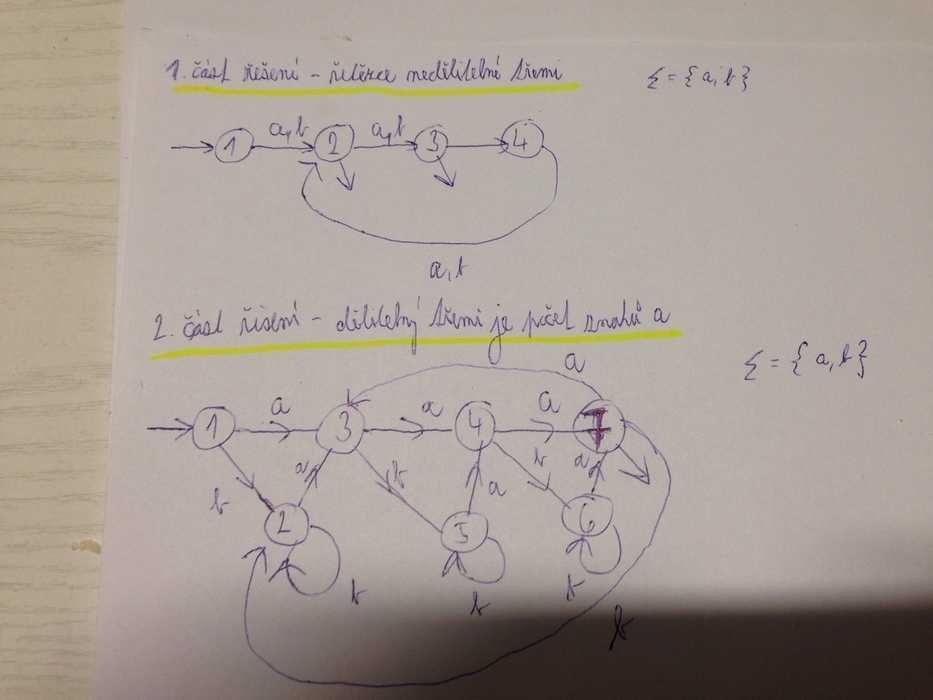 1. část řešení - řetězce nedělitelné třemi
Σ = {a, b}
a, b a, b
1 2 3 4
a, b
2. část řešení - dělitelný třemi je počet znaků a
Σ = {a, b}
a
a a a
1 3 4 7
b a b a b a
2 5 6
b b b
b